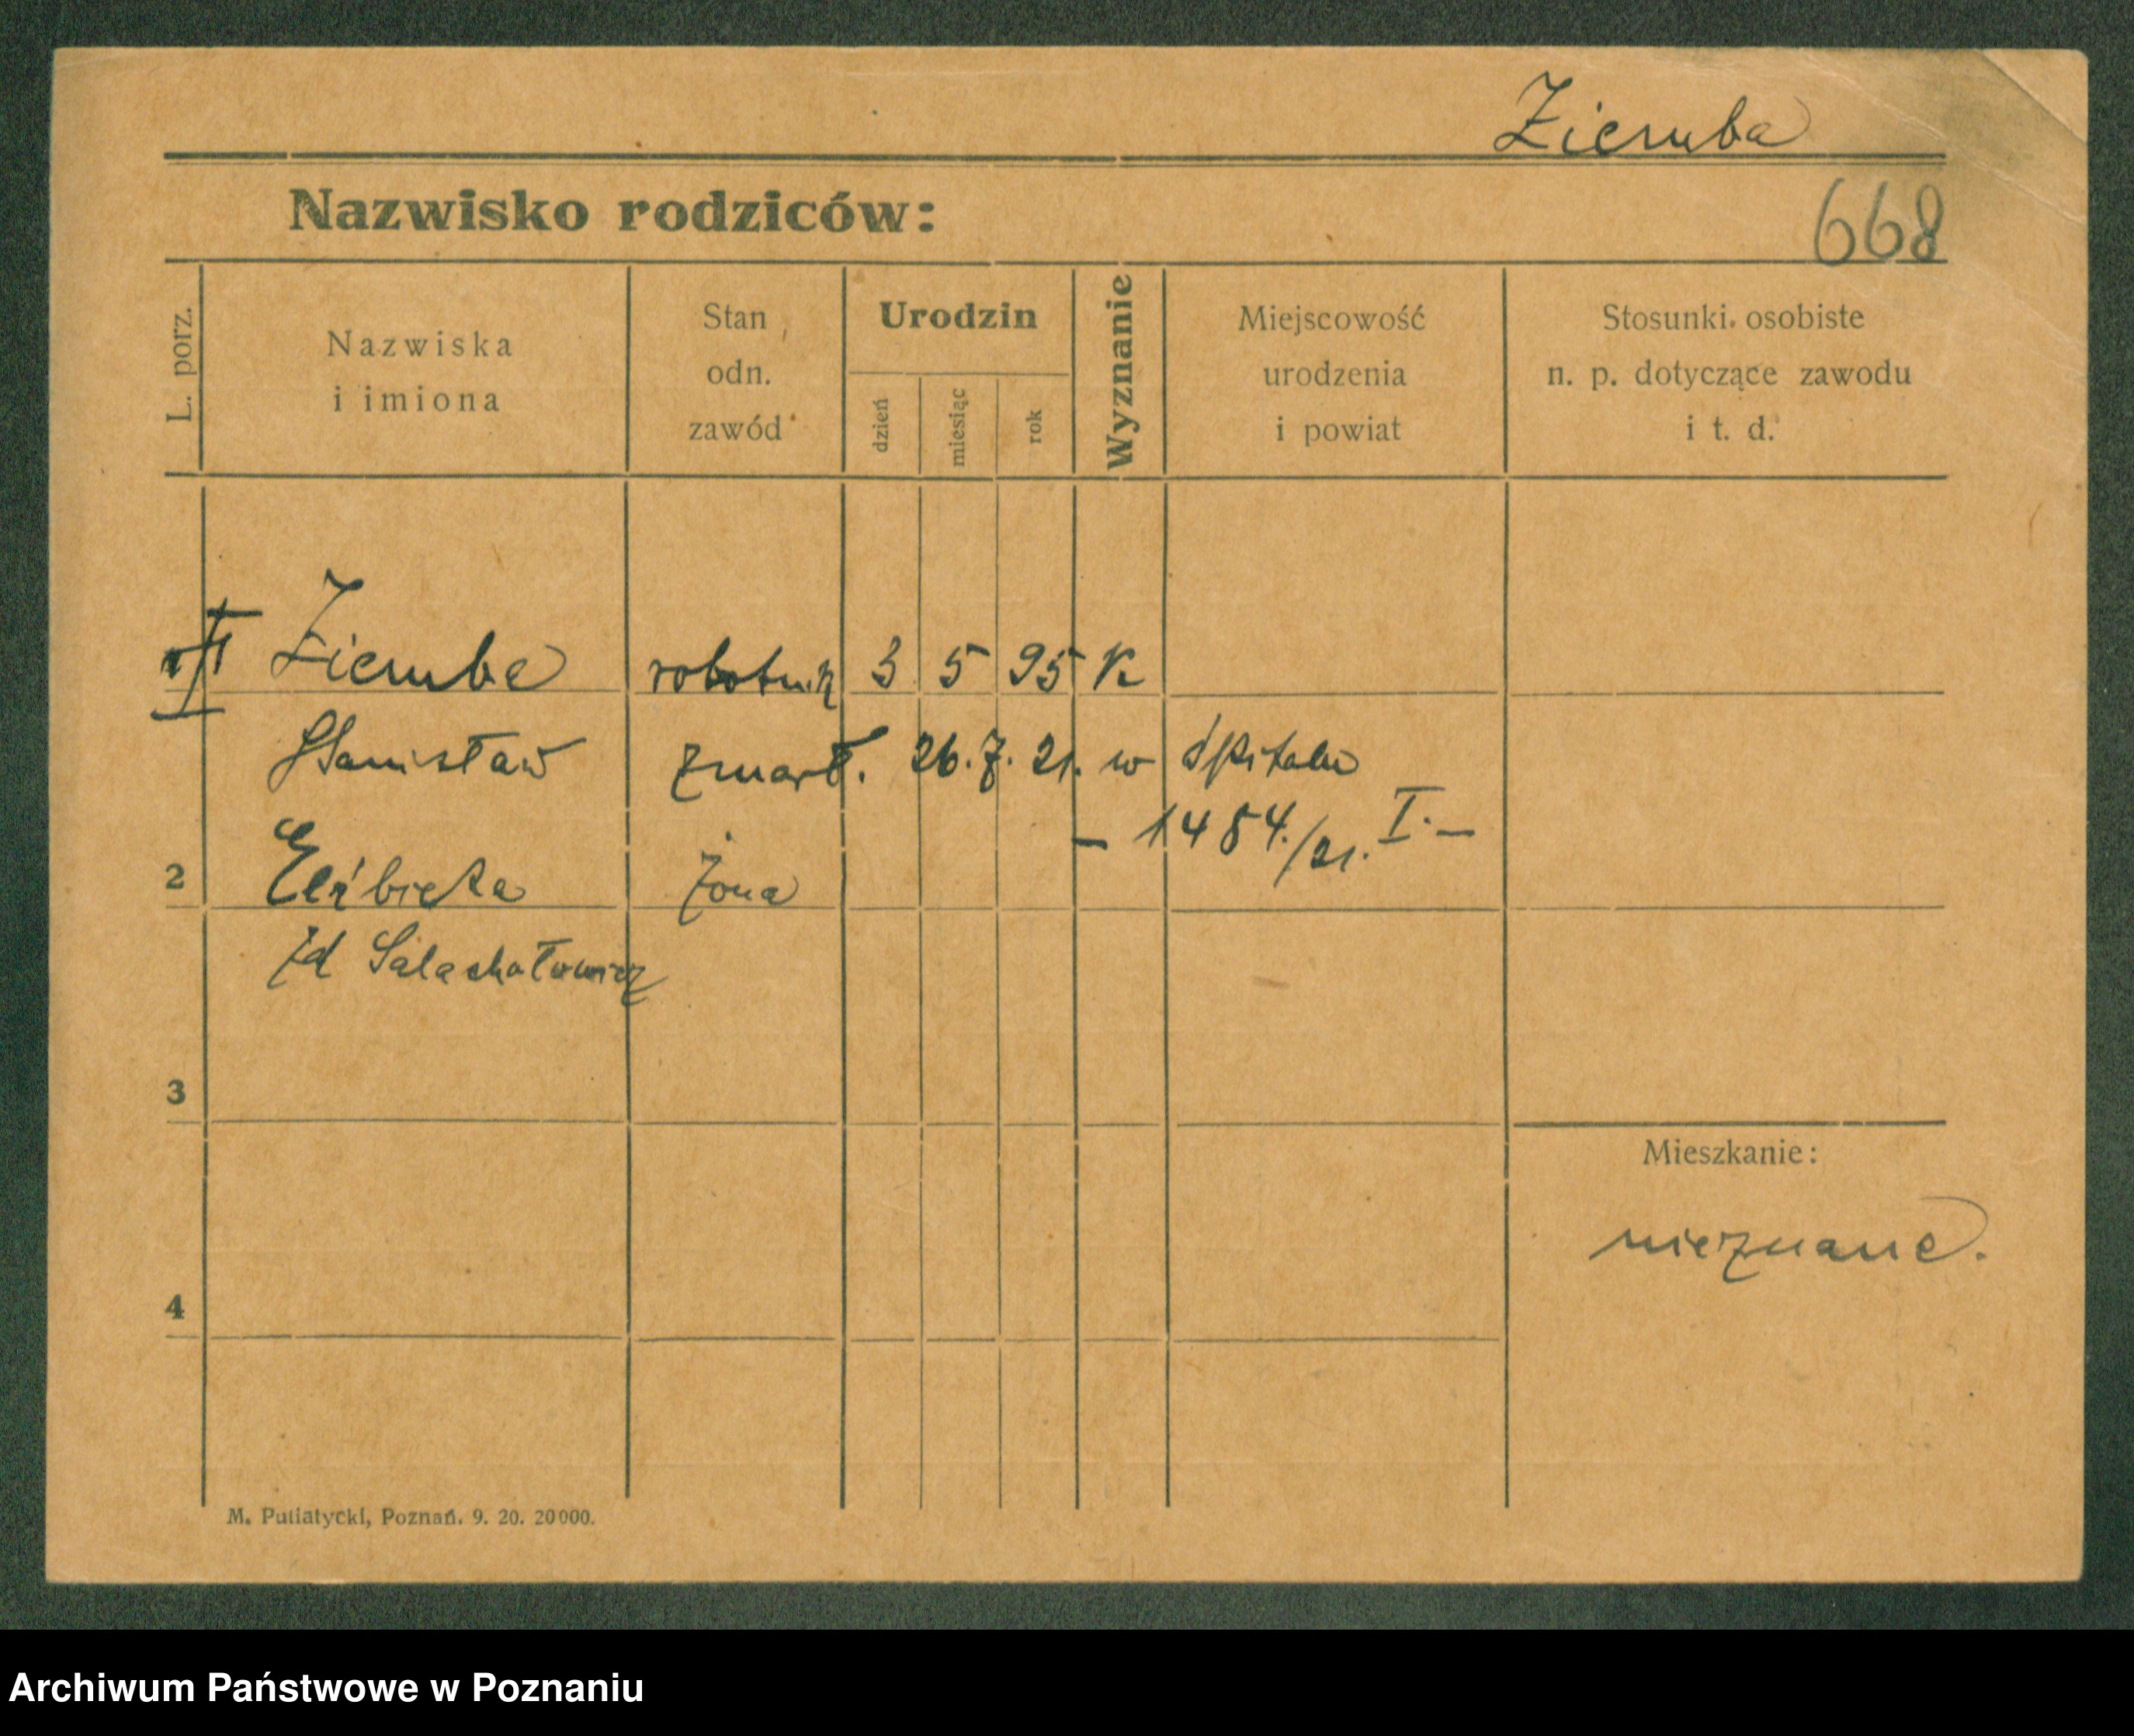 Ziemba
Nazwisko rodziców:
668
L. porz.
Nazwiska
i imiona
Stan
odn.
zawód
Urodzin
dzień
miesiąc
rok
Wyznanie
Miejscowość
urodzenia
i powiat
Stosunki osobiste
n. p. dotyczące zawodu
i t. d.
Ziemba robotnik 3 5 95 K
Stanisław zmarł. 26. 7. 21. w szpitalu
– 1484./21. I. –
2 Elżbieta żona
zd
3
Mieszkanie:
nieznane.
4
M. Putiatycki, Poznań. 9. 20. 20000.
Archiwum Państwowe w Poznaniu